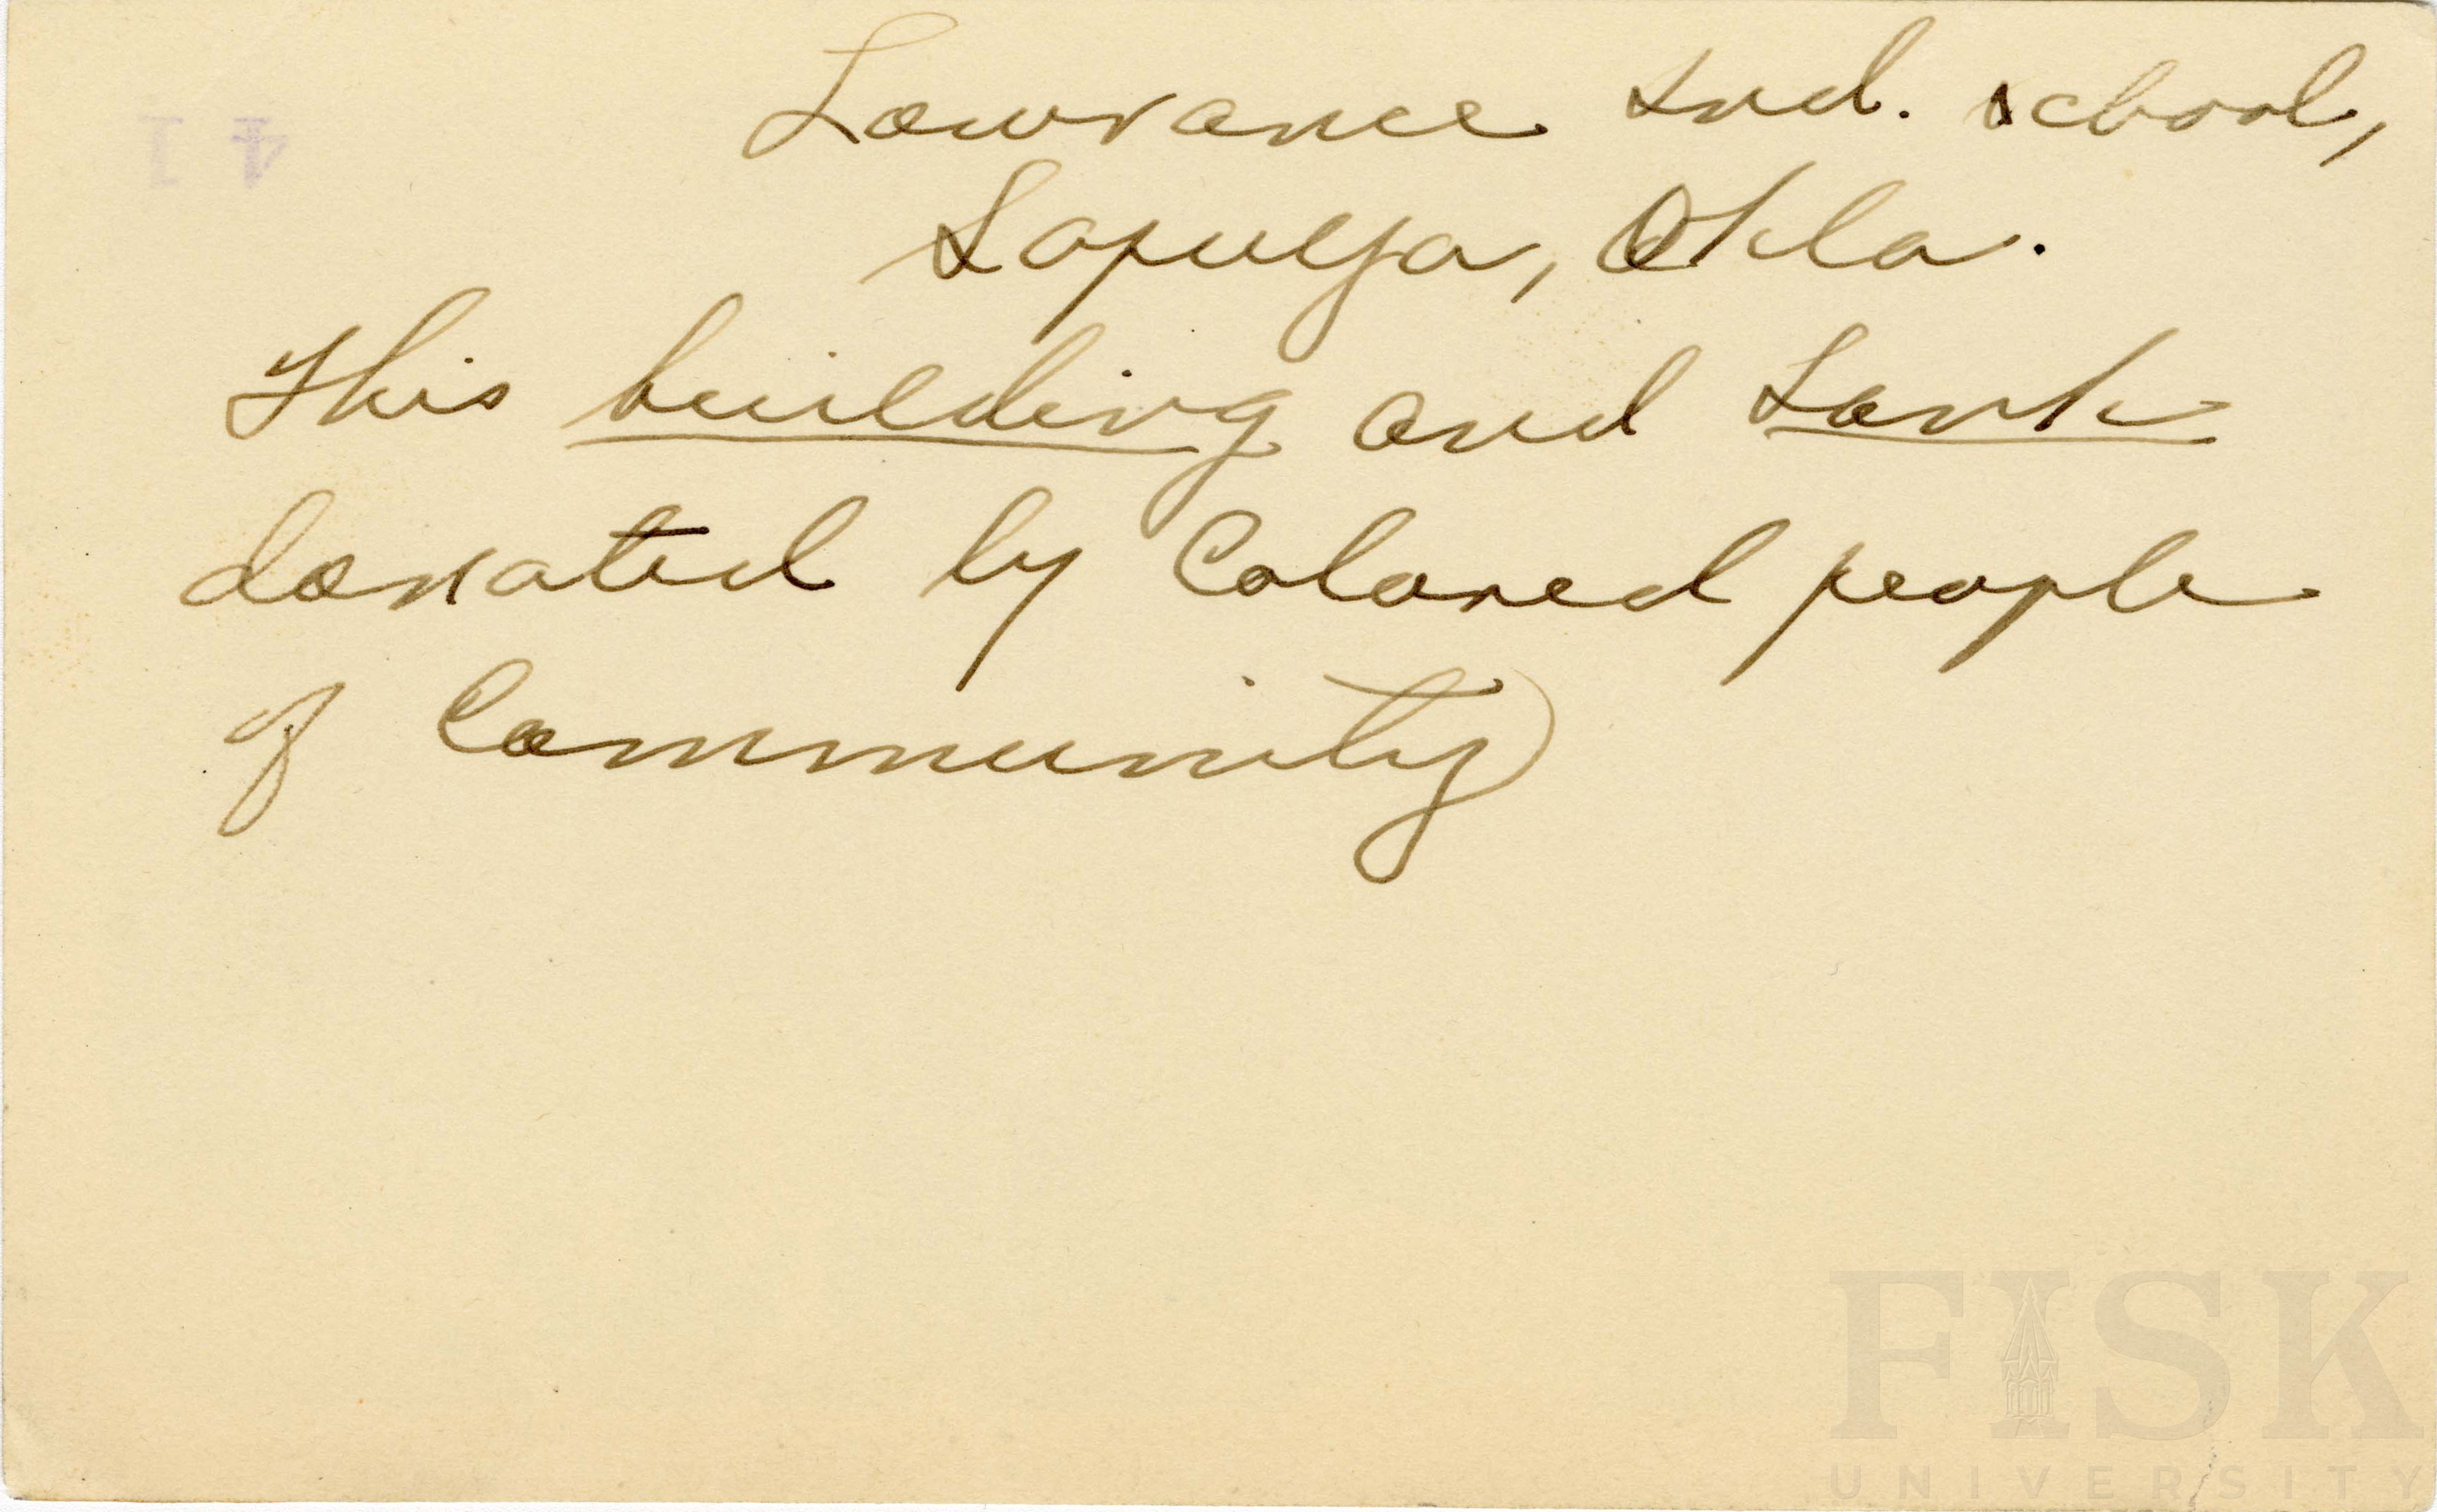 41
Lowrance Ind. School,
Sapulpa, Okla.
This building and Tank
donated by Colored people
of Community
FISK
UNIVERSITY